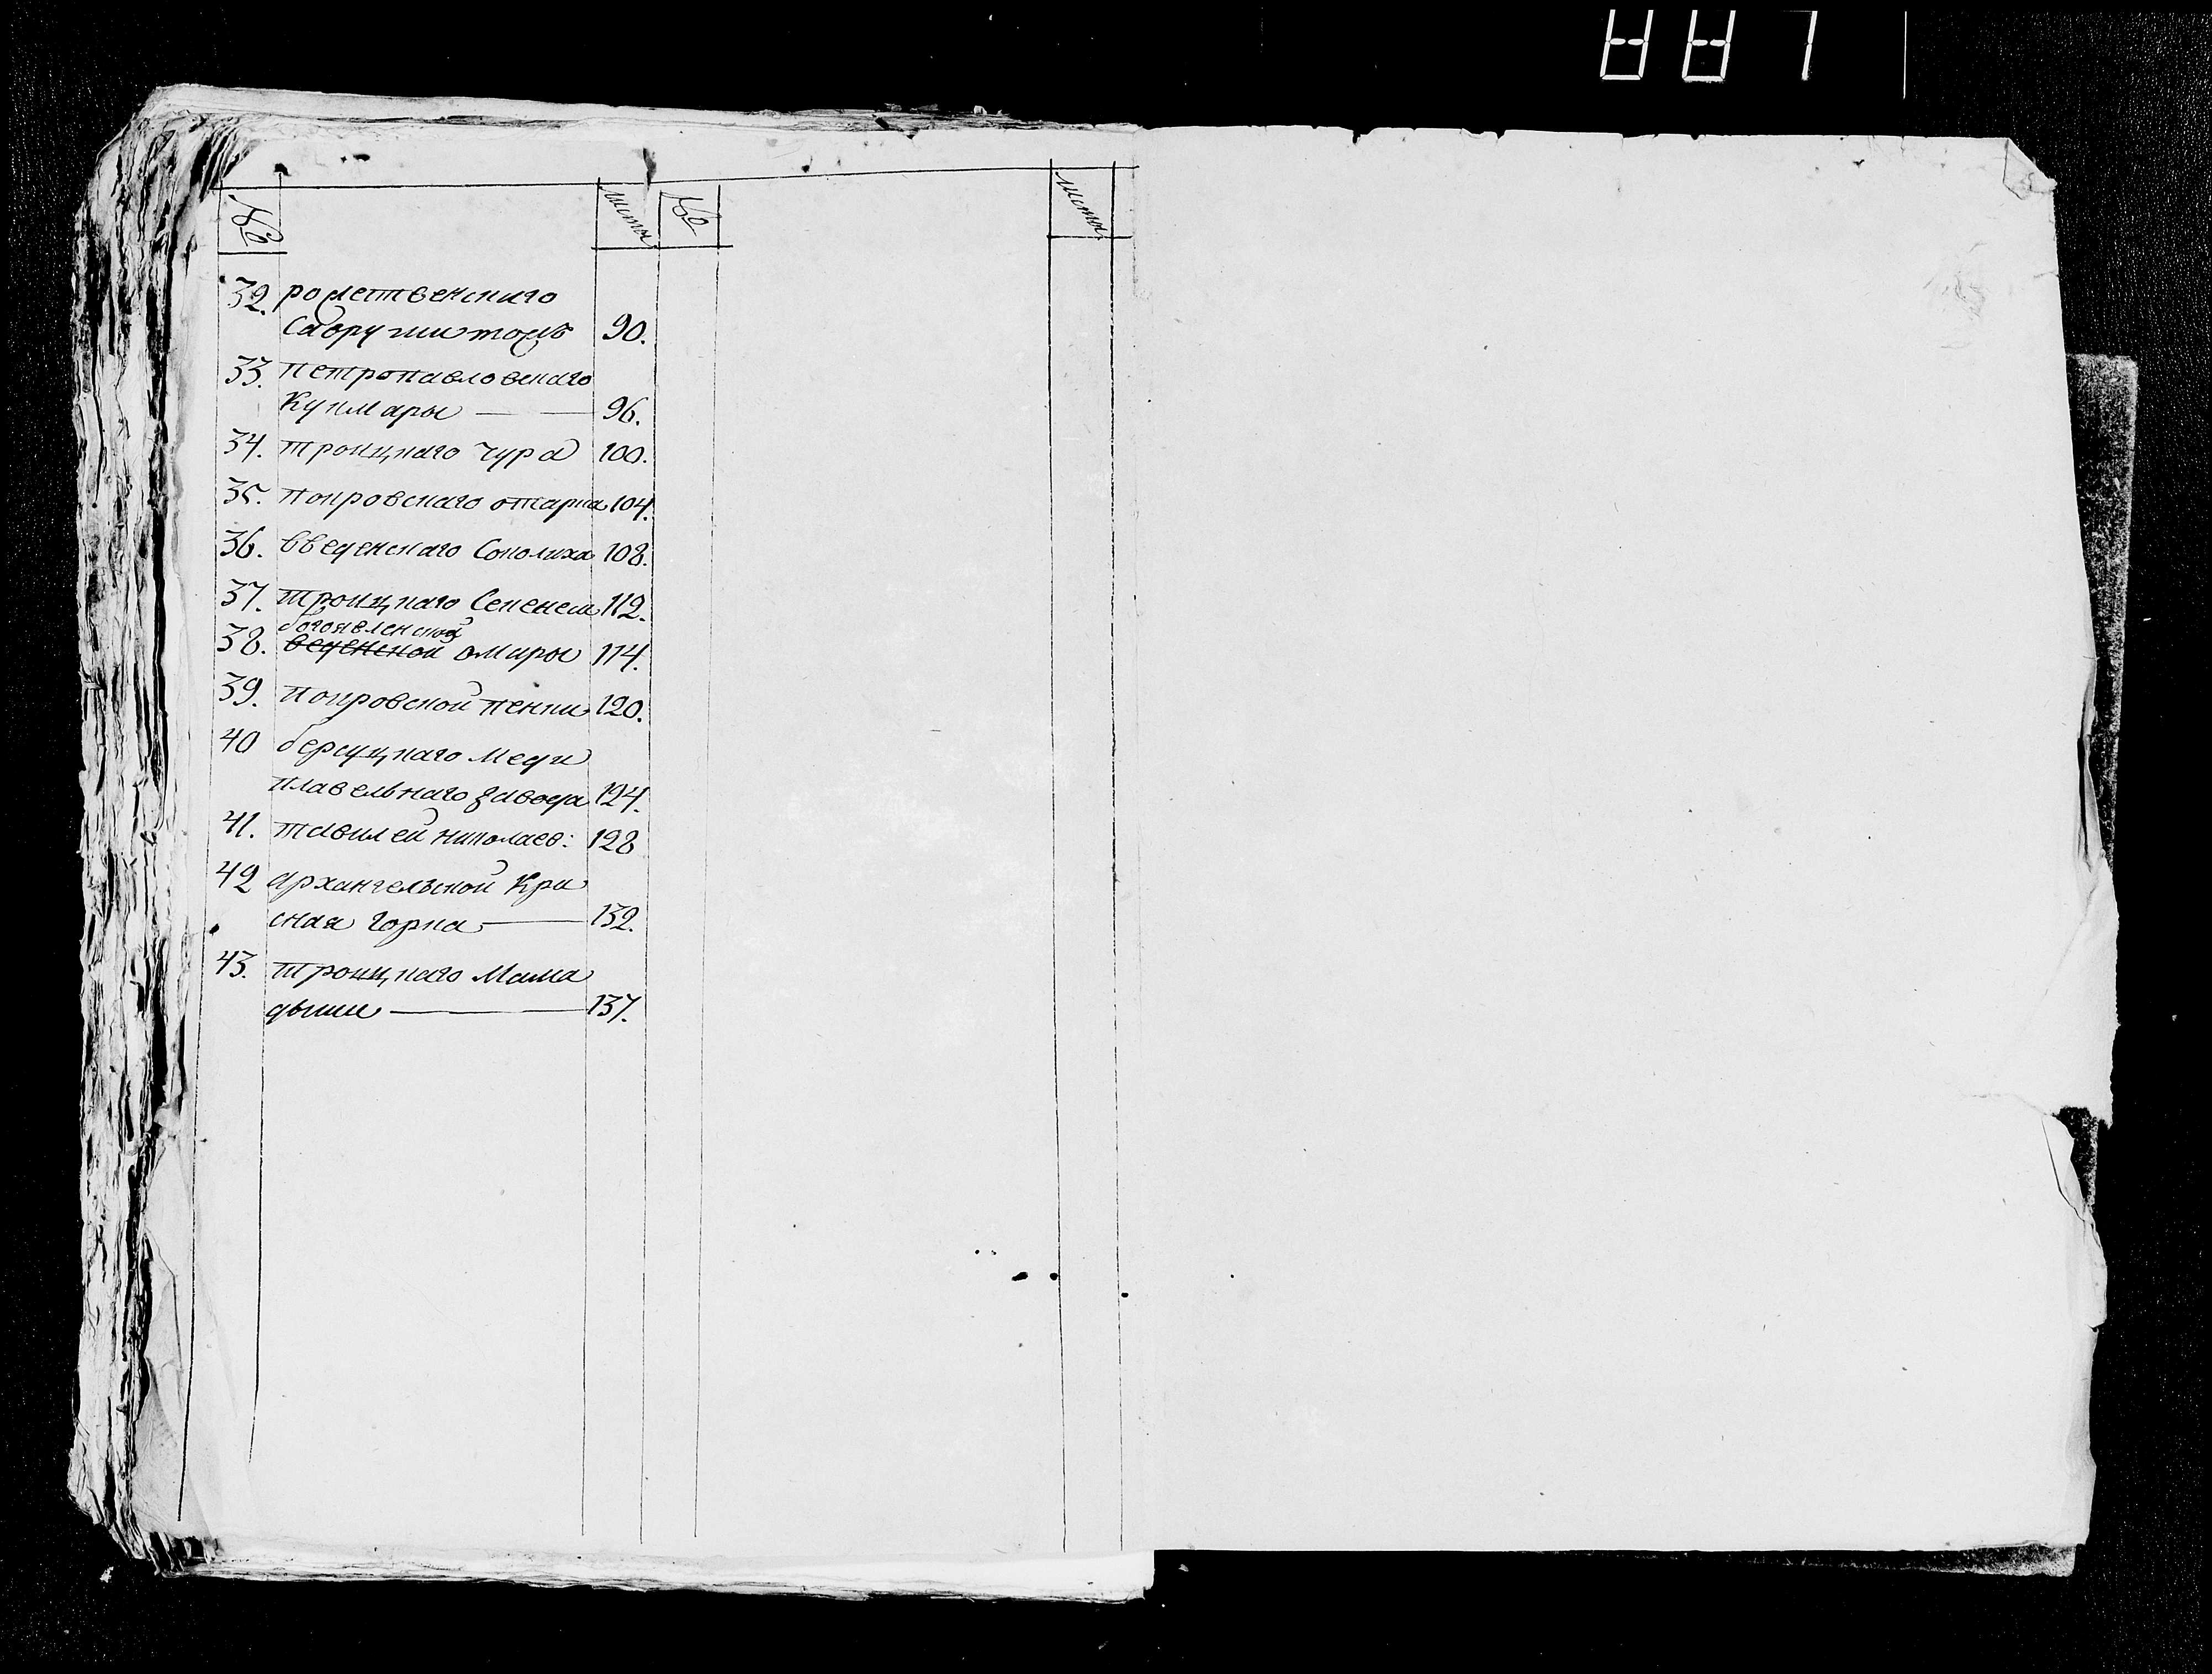 № листы № листы
32. рожественскаго
Савруши тожъ 90.
33. петропавловскаго
Кукмары — 96.
34. троицкаго Чура 100.
35. покровскаго отарка 104.
36. введенскаго Соколиха 108.
37. троицкаго Секенеси 112.
богоявленской
38. веденской омары 114.
39. покровской пенки 120.
40 берсуцкаго меди
плавельнаго завода 124.
41. тавилей николаев: 128
42 архангельской Кра
сная горка — 132.
43. троицкаго Мама
дыши — 137.